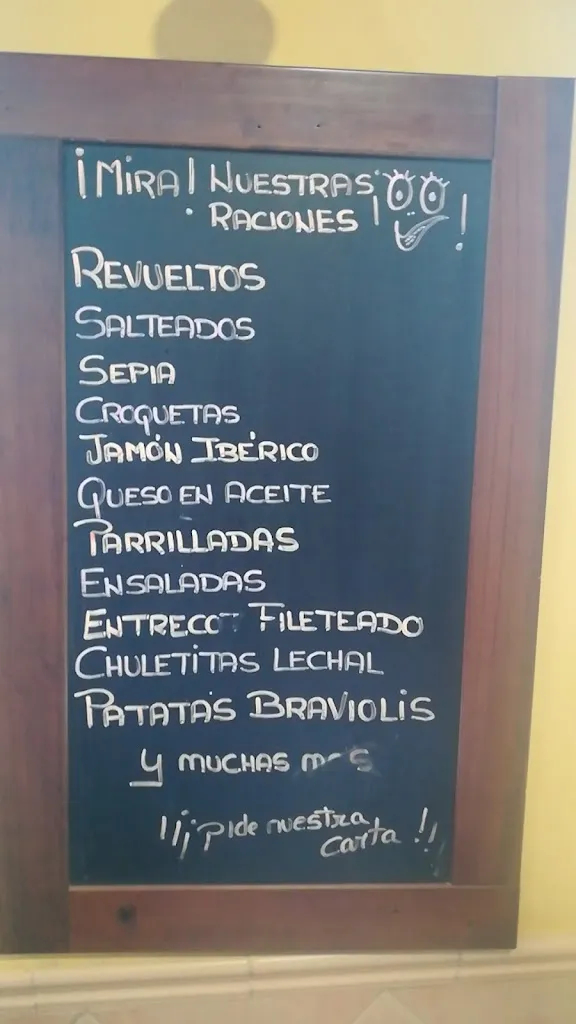 ¡MIRA! NUESTRAS
RACIONES ¡ !
REVUELTOS
SALTEADOS
SEPIA
CROQUETAS
JAMÓN IBÉRICO
QUESO EN ACEITE
PARRILLADAS
ENSALADAS
FILETEADO
CHULETITAS LECHAL
PATATAS BRAVIOLIS
Y MUCHAS
¡¡¡pide nuestra
carta!!